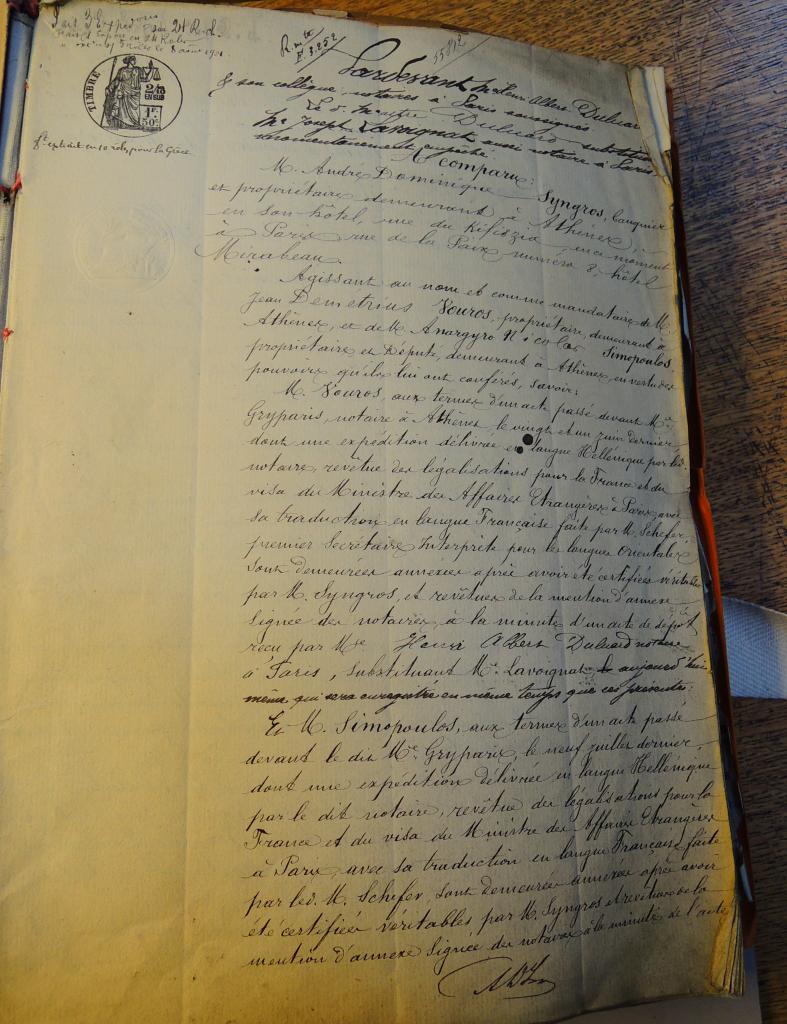 Fait 3 Expéd
R. m te
N. 3.252
TIMBRE
2/10 EN SUS
1F. 50c.
Et extrait en 10 rôles, pour la Grèce
Pardevant Me Henri Albert Duluard
& son collègue, notaires à Paris soussignés
Le d. Me Duluard substituant
Me Joseph Lavoignat aussi notaire à Paris
momentanément empêché
A comparu:
M. André Dominique Syngros, banquier
et propriétaire, demeurant à Athènes,
en son hôtel, rue du Kifiszia, en ce moment
à Paris rue de la Paix numéro 8, hôtel
Mirabeau.
Agissant au nom et comme mandataire de M.
Jean Demetrius Vouros, propriétaire, demeurant à
Athènes, et de M. Anargyro Nicolas Simopoulos,
propriétaire et Député, demeurant à Athènes, en vertu des
pouvoirs qu'ils lui ont conférés, savoir:
M. Vouros, aux termes d'un acte passé devant Me
Gryparis, notaire à Athènes, le vingt et un juin dernier,
dont une expédition délivrée en langue Hellénique par led.
notaire, revêtue des légalisations pour la France et du
visa du Ministre des Affaires Etrangères à Paris, avec
sa traduction en langue Française faite par M. Schefer,
premier Secrétaire Interprète pour les langues Orientales
sont demeurées annexées après avoir été certifiées véritables
par M. Syngros, et revêtues de la mention d'annexe
signée des notaires, à la minute d'un acte de dépôt
reçu par Me Henri Albert Duluard notaire
à Paris, substituant Me Lavoignat aujourd'hui
même, qui sera enregistré en même temps que ces présentes.
Et M. Simopoulos, aux termes d'un acte passé
devant le dit Me Gryparis, le neuf juillet dernier,
dont une expédition délivrée en langue Hellénique
par le dit notaire, revêtue des légalisations pour la
France et du visa du Ministre des Affaires Etrangères
à Paris, avec sa traduction en langue Française faite
par led. M. Schefer, sont demeurées annexées après avoir
été certifiées véritables par M. Syngros et revêtues de la
mention d'annexe signée des notaires à la minute de l'acte